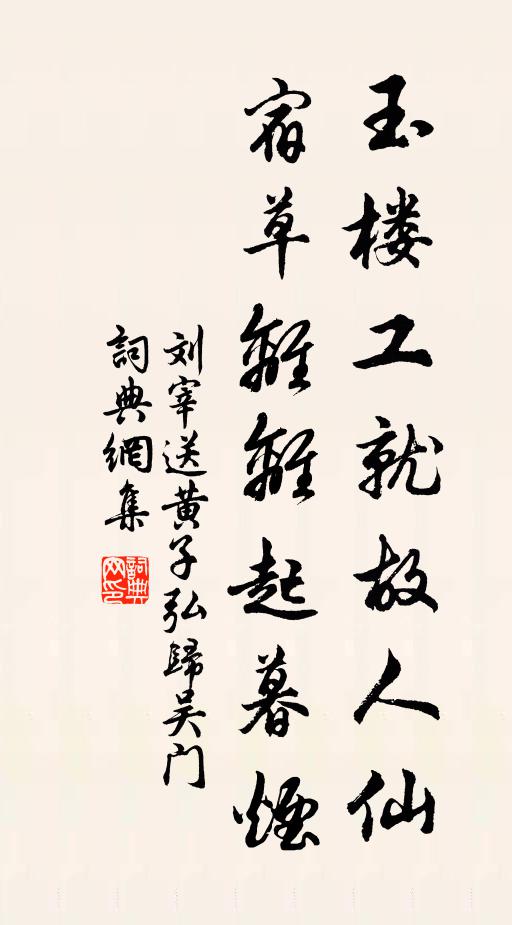 玉楼工就故人仙
宿草離離起暮煙
刘宰送黄子弘歸吴门
詞典網集
詞典网印